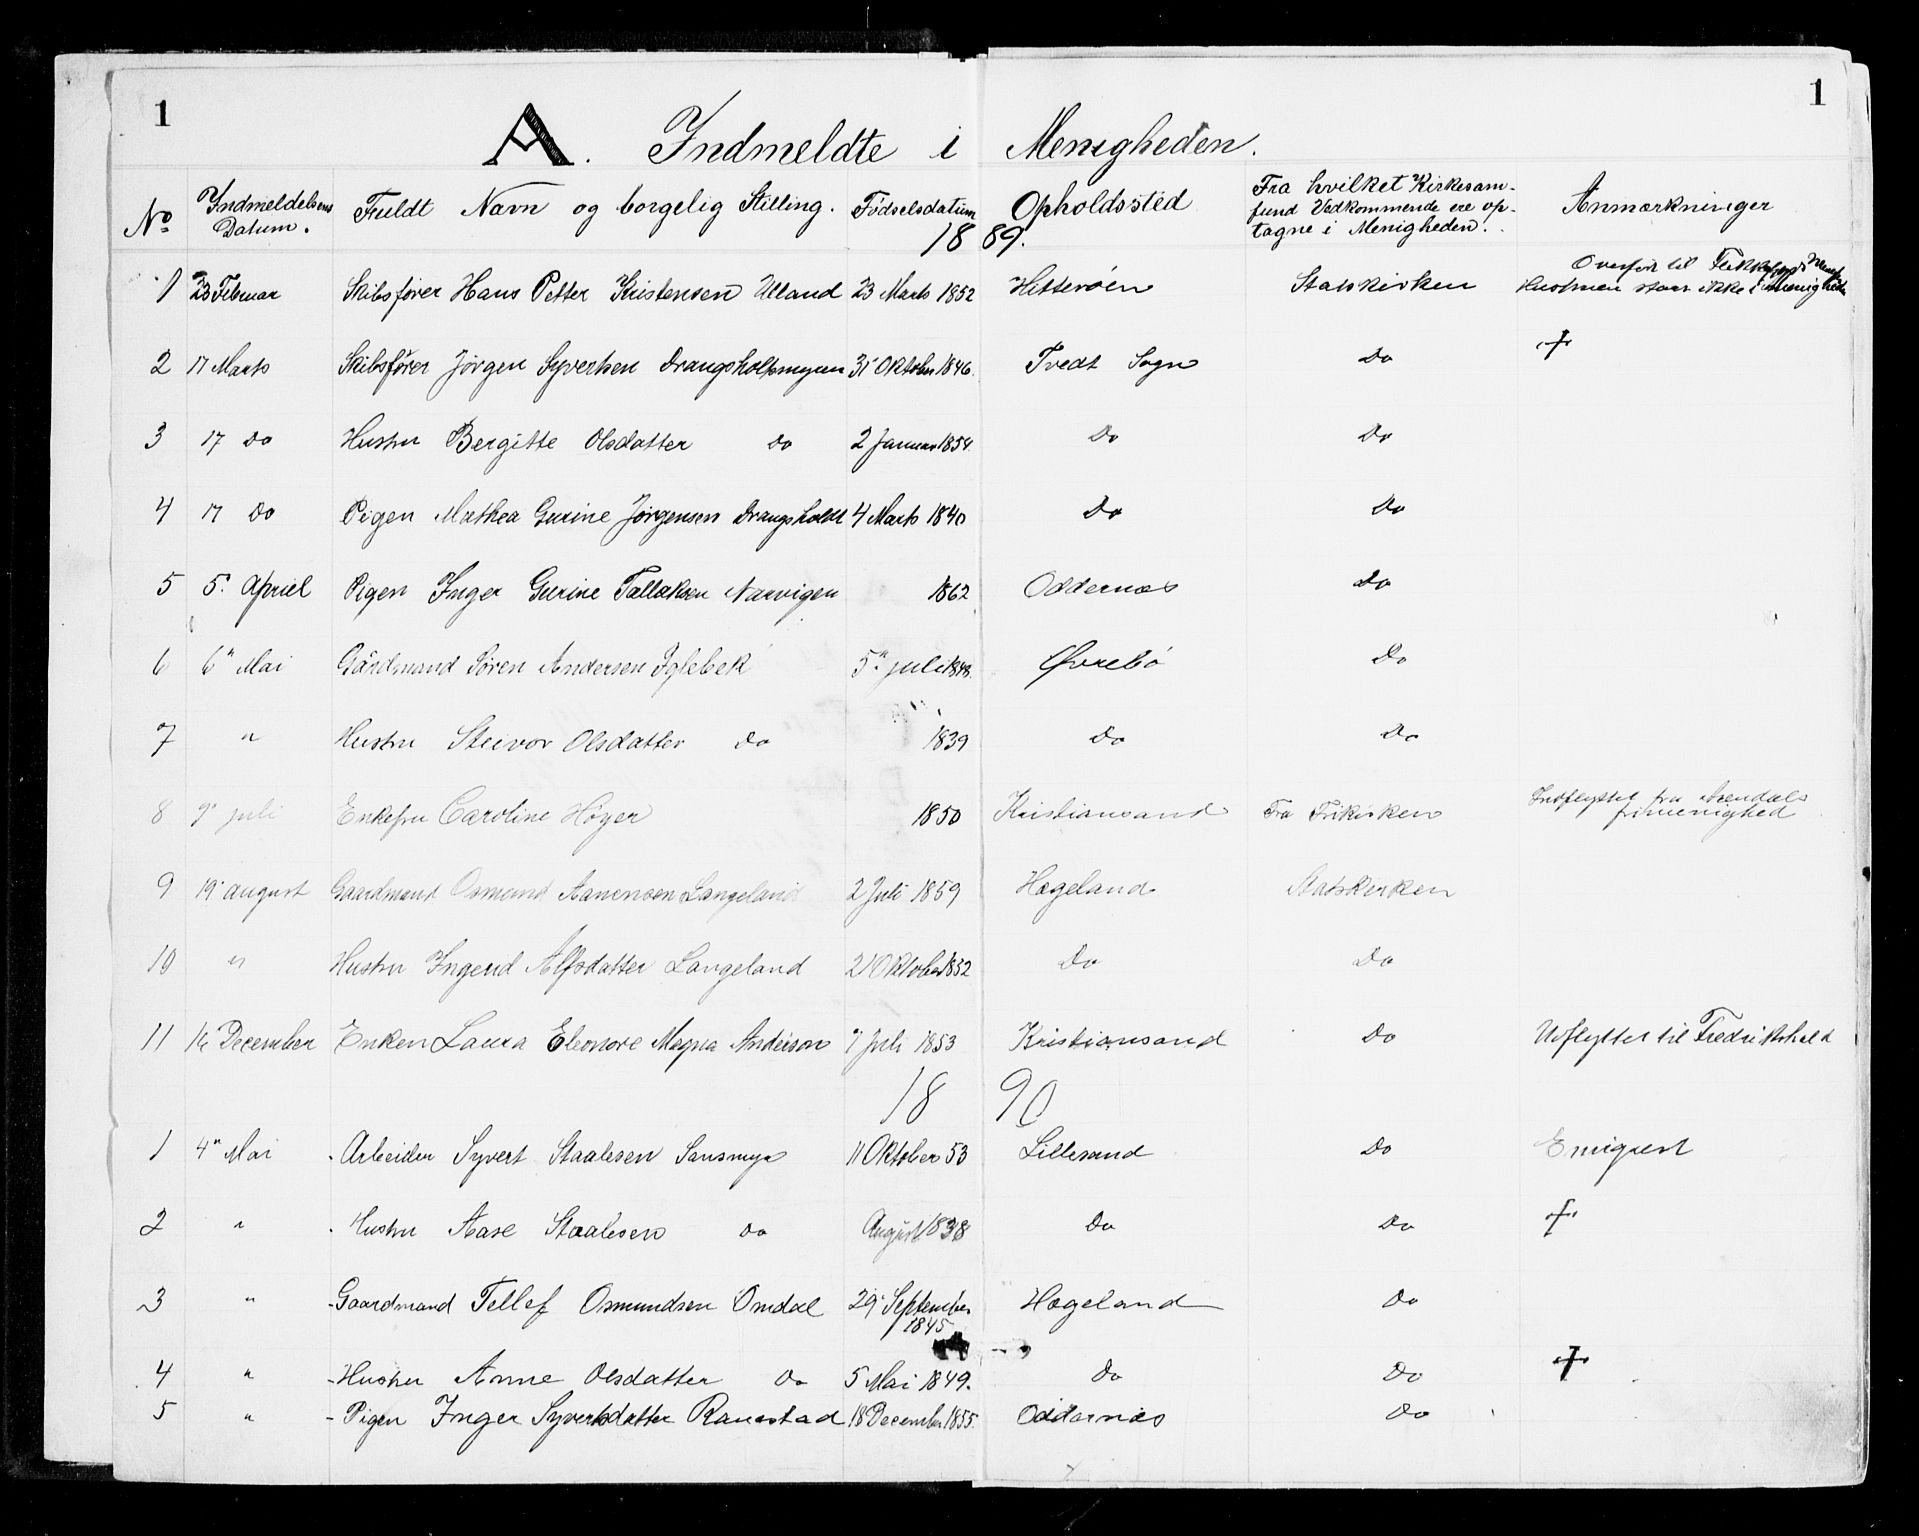 1 1
A. Indmeldte i Menigheden.
No Indmeldelsens Datum. Fuldt Navn og borgelig Stilling. Fødselsdatum Opholdssted Fra hvilket Kirkesam-
fund Vedkommende ere op-
tagne i Menigheden. Anmærkninger
1889.
Overført til Flekkefjords
1 23 Februar Skibsfører Hans Petter Kristensen Ulland 23 Marts 1852 Hitterøen Statskirken Hustruen staar ikke i menigheden
2 17 Marts Skibsfører Jørgen Syvertsen Drangsholtsmyren 31 Oktober 1846. Tvedt Sogn Do +
3 17 Do Hustru Bergitte Olsdatter Do 2 Januar 1854 Do Do
4 17 Do Pigen Mathea Gurine Jørgensen Drangsholt 4 Marts 1840 Do Do
5 5. April Pigen Inger Gurine Tallaksen Narvigen 1862 Oddernæs Do
6 6" Mai Gårdmand Søren Andersen Iglebek 5" juli 1848. Øvrebø Do
7 " Hustru Steivor Olsdatter Do 1839 Do Do
8 9" juli Enkefru Caroline Høyer 1850 Kristiansand Fra Frikirken Indflyttet fra Arendals
frimenighed
9 19" august Gaardmand Osmund Aanensen Langeland 2 Juli 1859 Hægeland Statskirken
10 " Hustru Ingerid Alfsdatter Langeland 21 Oktober 1852 Do Do
11 16 December Enken Laura Eleonore Magna Anderson 7 Juli 1853 Kristiansand Do Udflyttet til Fredrikshald
1890
1 4" Mai Arbeider Syvert Staalesen Sansmyr 11 Oktober 53 Lillesand Do Emigrert
2 " Hustru Aase Staalesen Do August 1838 Do Do +
3 " Gaardmand Tellef Osmundsen Omdal 29 September
1845 Hægeland Do
4 " Hustru Anne Olsdatter Do 5 Mai 1849. Do Do +
5 " Pigen Inger Syvertsdatter Raustad 18 December 1855. Oddernæs Do